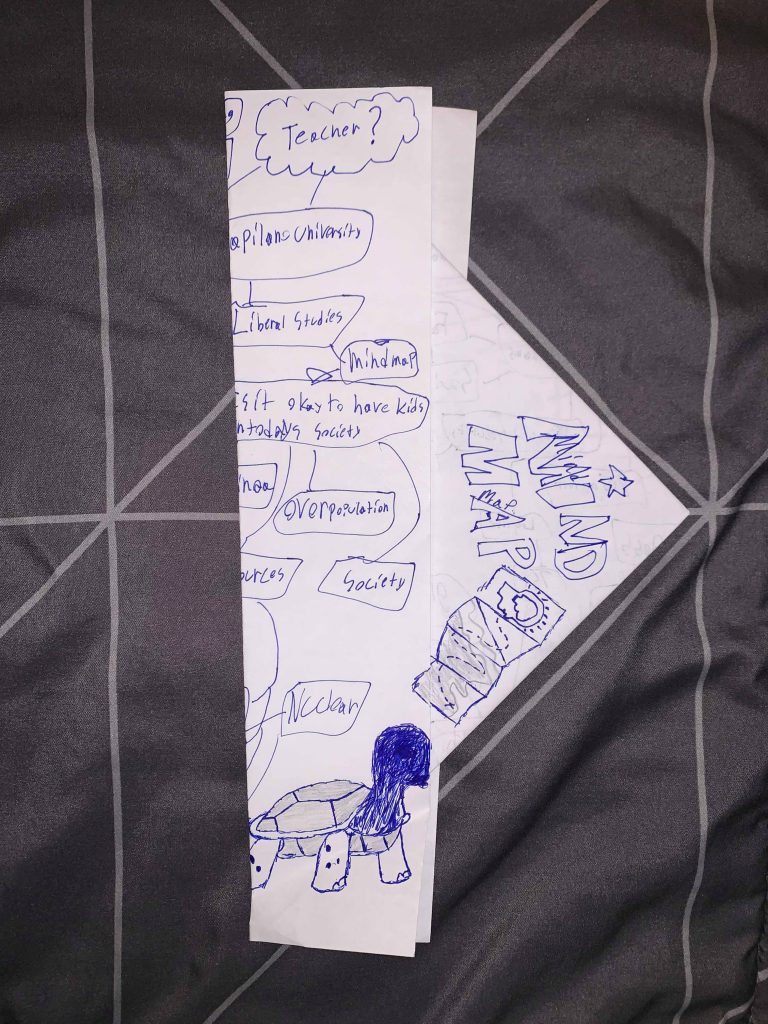 Teacher?
apilano University
Liberal Studies
mindmap
s it okay to have kids
n todays society
overpopulation
ources
Society
Nuclear
MIND
MAP
Map